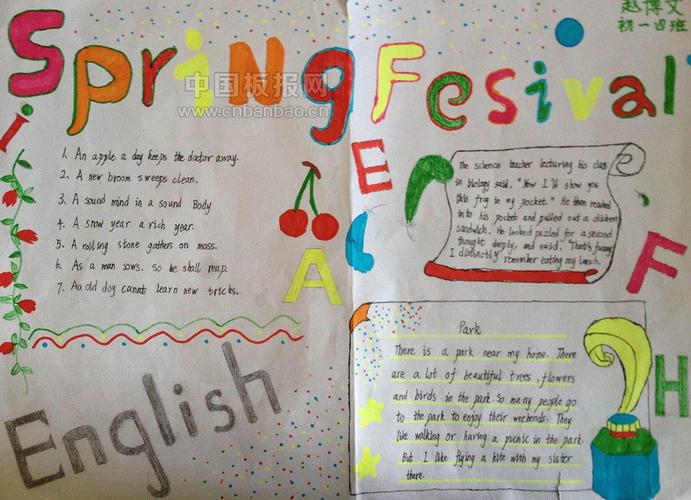 赵博文
初一四班
Spring Fesival
中国板报网
www.cnbanbao.cn
1. An apple a day keeps the doctor away.
2. A new broom sweeps clean.
3. A sound mind in a sound Body
4. A snow year a rich year.
5. A rolling stone gathers on moss.
6. As a man sows. so he shall reap.
7. An old dog cannot learn new tricks.
i
E
A
C
F
H
The science teacher lecturing his class
in biology said, "Now I'll show you
this frog in my pocket." He then reached
into his pocket and pulled out a chicken
sandwich. He looked puzzled for a second
thought deeply, and said, "That's funny
I distinctly remember eating my lunch.
Park
There is a park near my home. There
are a lot of beautiful trees, flowers
and birds in the park. So many people go
to the park to enjoy their weekends. They
like walking or having a picnic in the park
But I like flying a kite with my sister
there.
English